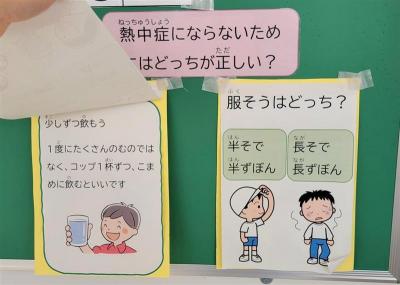 ねっちゅうしょう
熱中症にならないため
にはどっちが正しい？
ただ
少しずつ飲もう
１度にたくさんのむのでは
なく、コップ１杯ずつ、こま
めに飲むといいです
ふく
服そうはどっち？
はん
半そで
はん
半ずぼん
なが
長そで
なが
長ずぼん